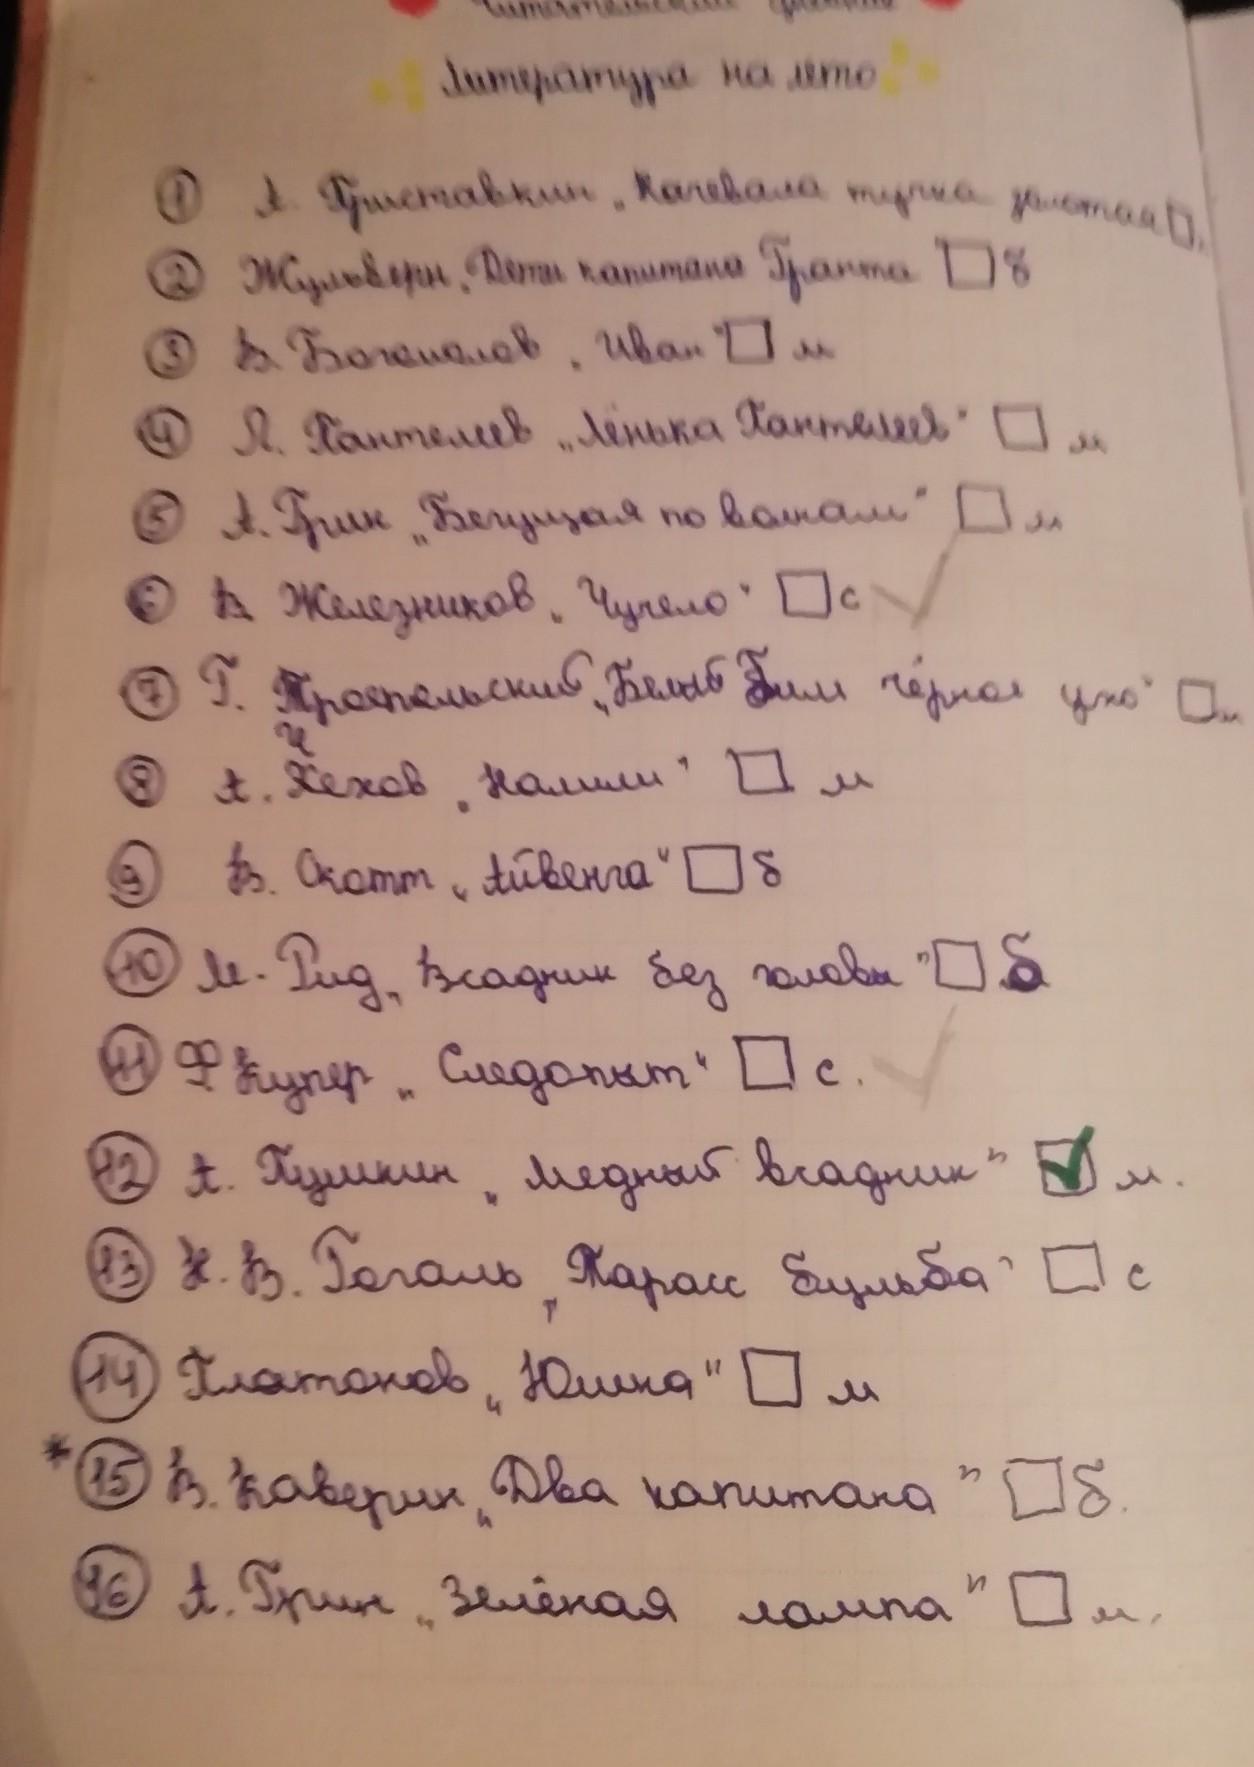 Читательский дневник
Литература на лето
1 А. Приставкин „Качевала тучка золотая
2 Жульверн „Дети капитана Гранта б
3 В. Богомолов „Иван" м
4 Л. Пантелеев „Лёнька Пантелеев" м
5 А. Грин „Бегущая по волнам" м
6 В. Железников „Чучело" с
7 Г. Троепольский „Белый Бим чёрное ухо" м
8 А. Чехов „Налим" м
9 В. Скотт „Айвенга" б
10 М. Рид „Всадник без головы" б
11 Ф Купер „Следопыт" с.
12 А. Пушкин „Медный всадник" м.
13 Н. В. Гоголь „Тарасс бульба" с
14 Платонов „Юшка" м
* 15 В. Каверин „Два капитана" б.
16 А. Грин „Зелёная лампа" м.